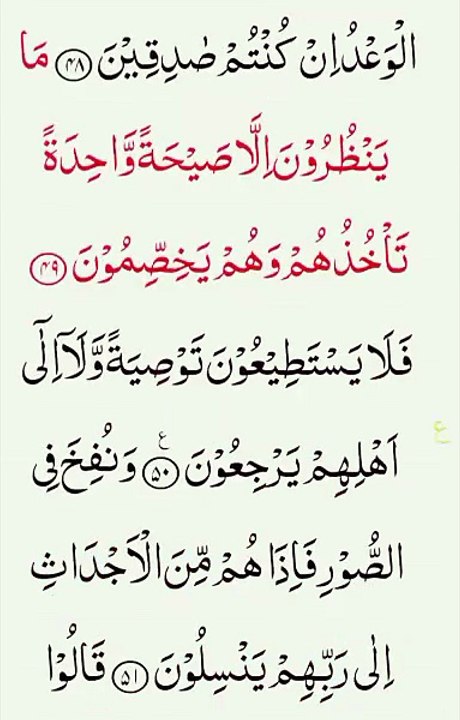 الْوَعْدُ اِنْ كُنْتُمْ صٰدِقِيْنَ ﴿۴۸﴾ مَا
يَنْظُرُوْنَ اِلَّا صَيْحَةً وَّاحِدَةً
تَاْخُذُهُمْ وَهُمْ يَخِصِّمُوْنَ ﴿۴۹﴾
فَلَا يَسْتَطِيْعُوْنَ تَوْصِيَةً وَّلَآ اِلٰٓى
اَهْلِهِمْ يَرْجِعُوْنَ ﴿۵۰﴾ ع وَنُفِخَ فِى ع
الصُّوْرِ فَاِذَا هُمْ مِّنَ الْاَجْدَاثِ
اِلٰى رَبِّهِمْ يَنْسِلُوْنَ ﴿۵۱﴾ قَالُوْا